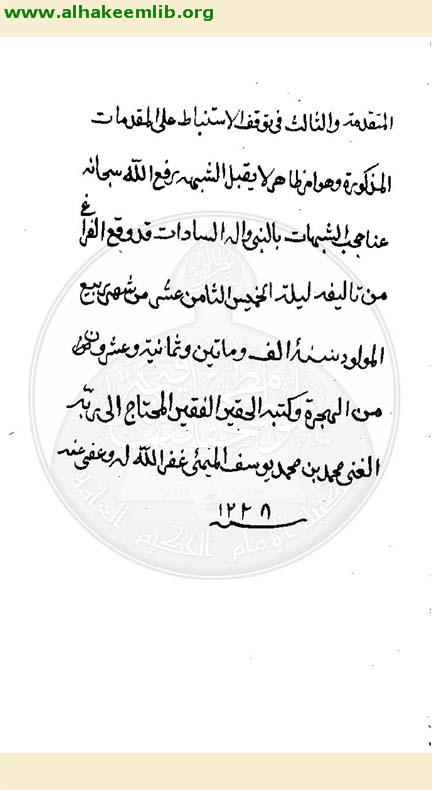 www.alhakeemlib.org
المتقدمة والثالث فى توقف الاستنباط على المقدمات
المذكورة وهو امر ظاهر لا يقبل الشبهه رفع الله سبحانه
عنا حجب الشبهات بالنبى واله السادات قد وقع الفراغ
من تاليفه ليلة الخميس الثامن عشر من شهر ربيع
المولود سنة الف وماتين وثمانية وعشرون
من الهجرة وكتبه الحقير الفقير المحتاج الى ربه
الغنى محمد بن محمد يوسف غفر الله له وعفى عنه
١٢٢٨